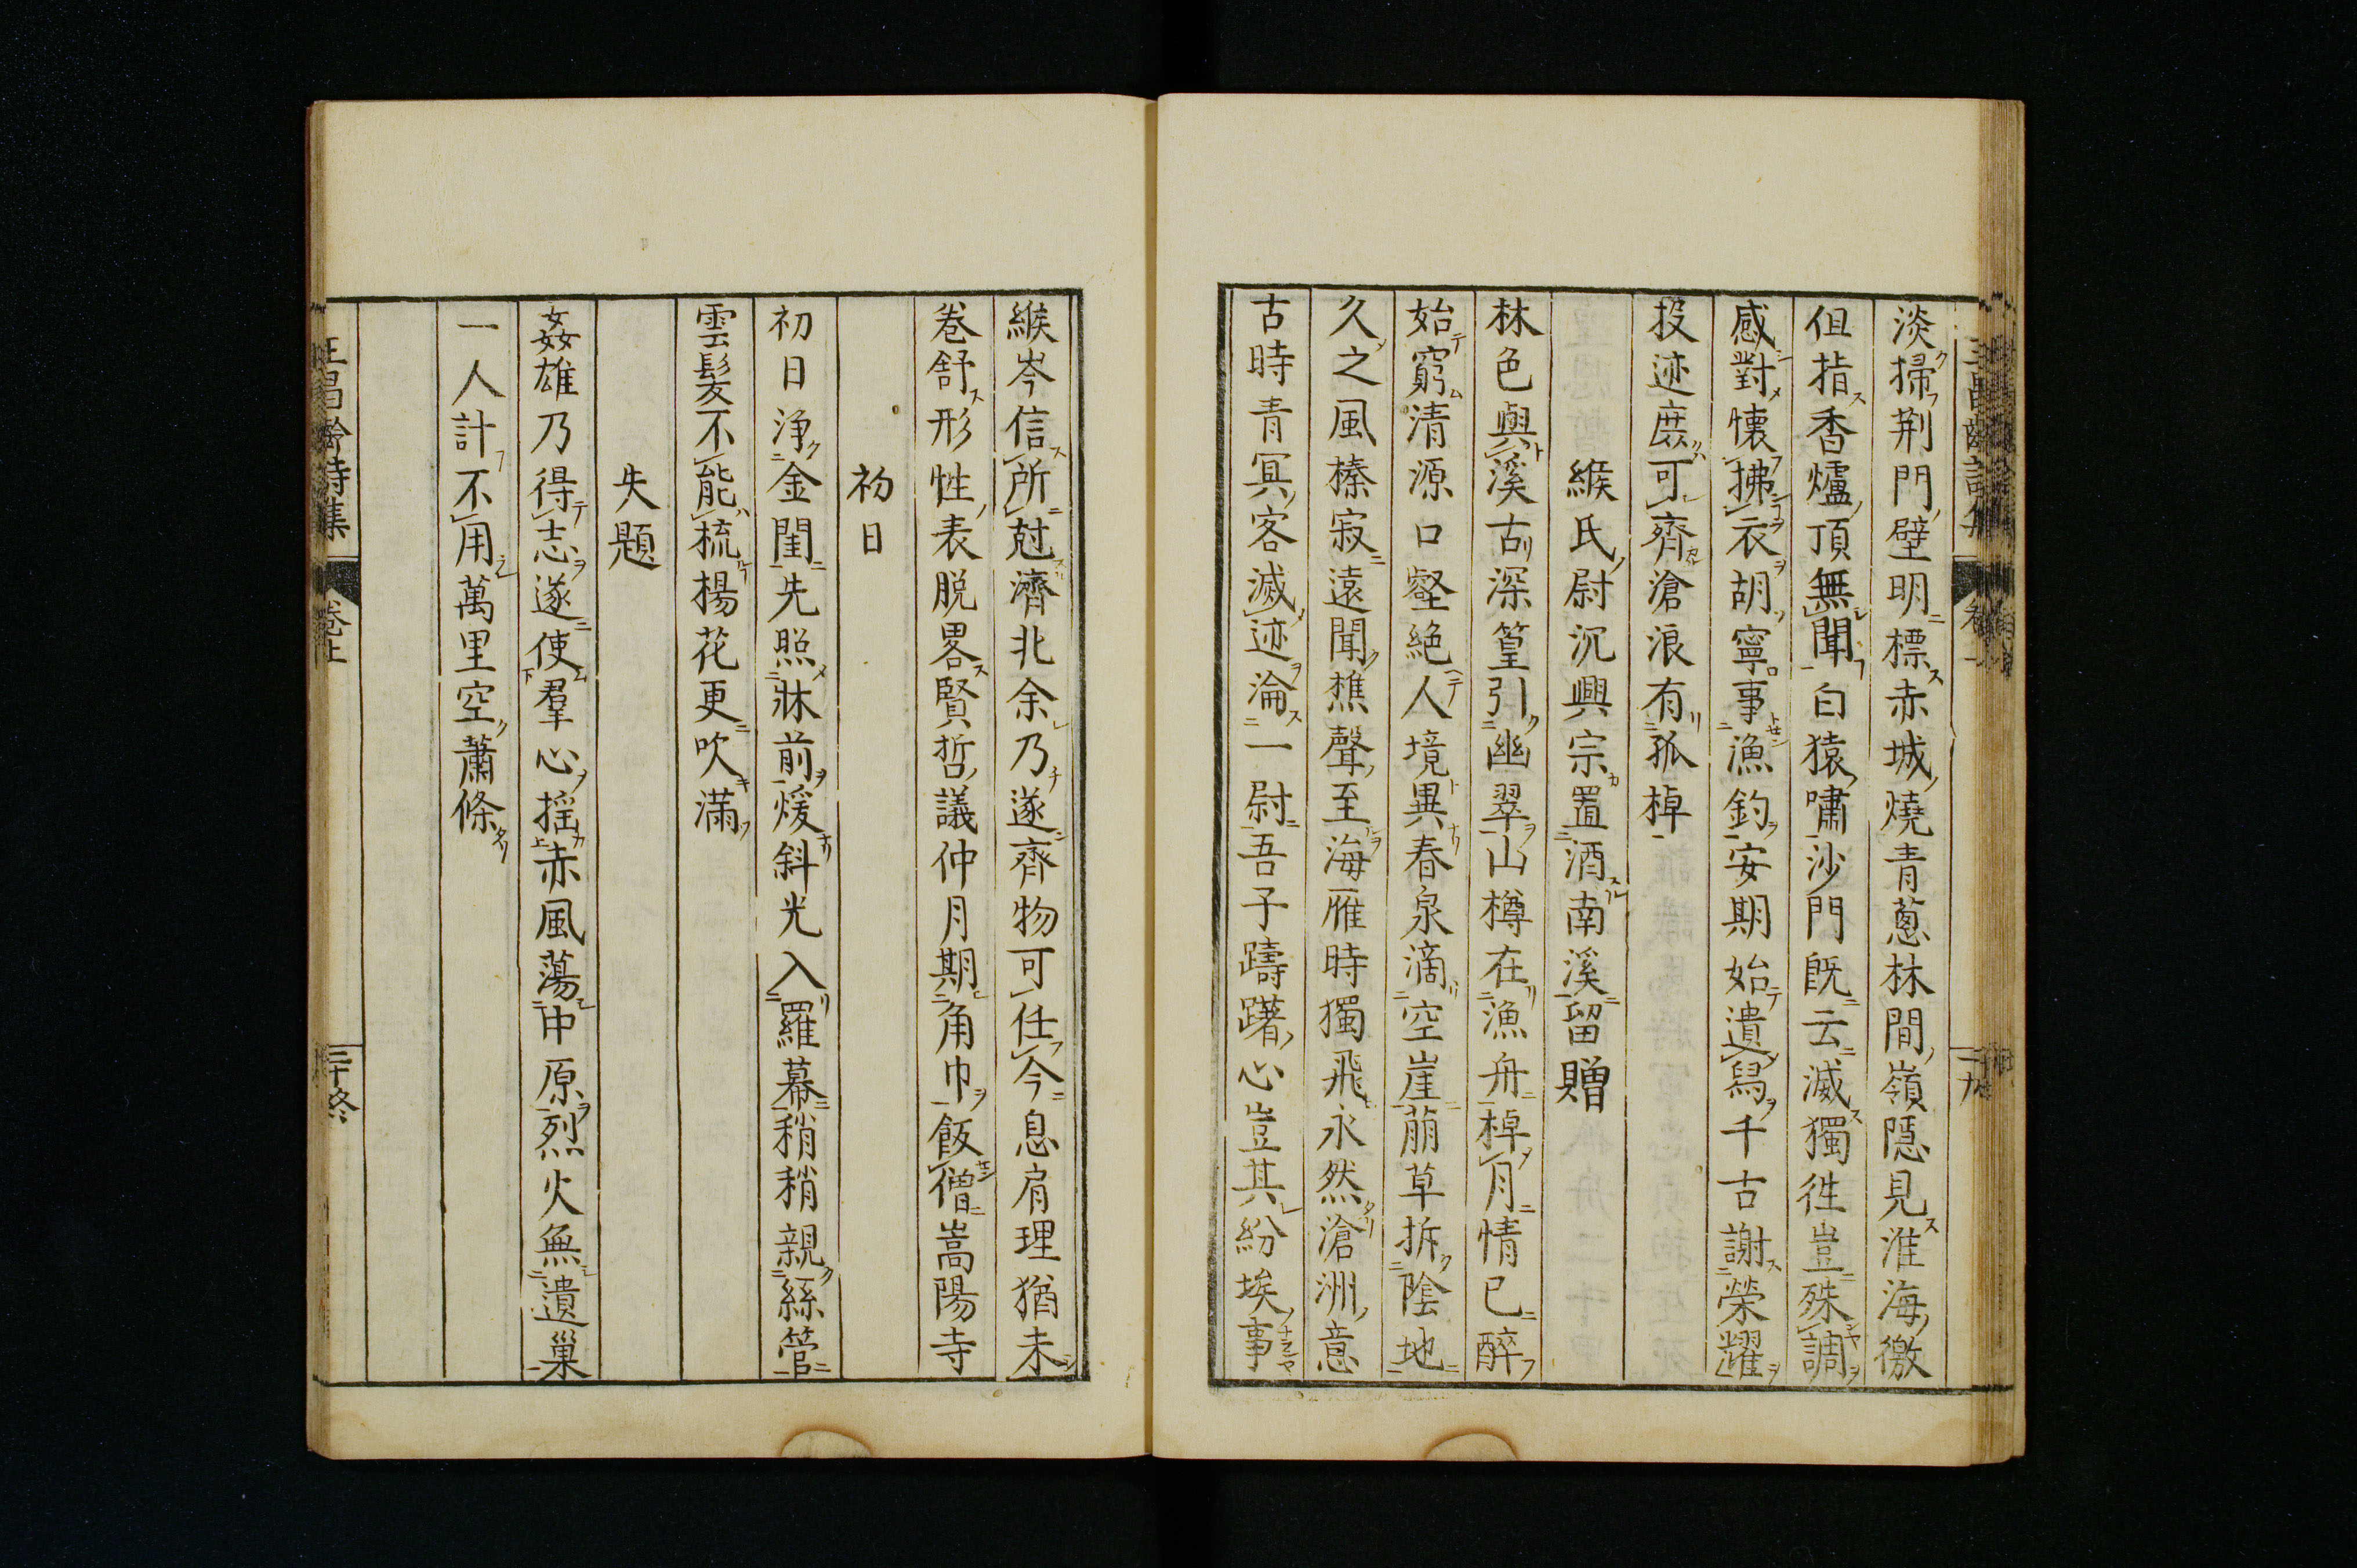 淡掃荆門壁明標赤城燒青蔥林間嶺隱見淮海徼
但指香爐頂無聞白猿嘯沙門旣云滅獨徃豈殊調
感對懷拂衣胡寧事漁釣安期始遺舄千古謝榮耀
投迹庶可齊滄浪有孤棹
緱氏尉沉興宗置酒南溪留贈
林色與溪古深篁引幽翠山樽在漁舟棹月情已醉
始窮清源口壑絶人境異春泉滴空崖萠草拆陰地
久之風榛寂遠聞樵聲至海雁時獨飛永然滄洲意
古時青冥客滅迹淪一尉吾子躊躇心豈其紛埃事
緱岑信所尅濟北余乃遂齊物可任今息肩理猶未
卷舒形性表脱畧賢哲議仲月期角巾飯僧嵩陽寺
初日
初日淨金閨先照牀前煖斜光入羅幕稍稍親絲管
雲髮不能梳楊花更吹滿
失題
姦雄乃得志遂使羣心揺赤風蕩中原烈火無遺巢
一人計不用萬里空蕭條
王昌齡詩集 卷上 二十終